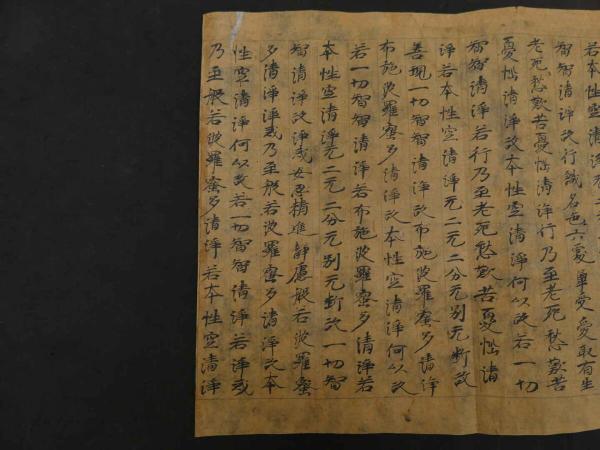 若本性空清淨无二
智智清淨故行識名色六處觸受愛取有生
老死愁歎苦憂惱清淨行乃至老死愁歎苦
憂惱清淨故本性空清淨何以故若一切
智智清淨若行乃至老死愁歎苦憂惱清
淨若本性空清淨无二无二分无別无断故
善現一切智智清淨故布施波羅蜜多清淨
布施波羅蜜多清淨故本性空清淨何以故
若一切智智清淨若布施波羅蜜多清淨若
本性空清淨无二无二分无別无断故一切智
智清淨故淨戒安忍精進靜慮般若波羅蜜
多清淨淨戒乃至般若波羅蜜多清淨故本
性空清淨何以故若一切智智清淨若淨戒
乃至般若波羅蜜多清淨若本性空清淨